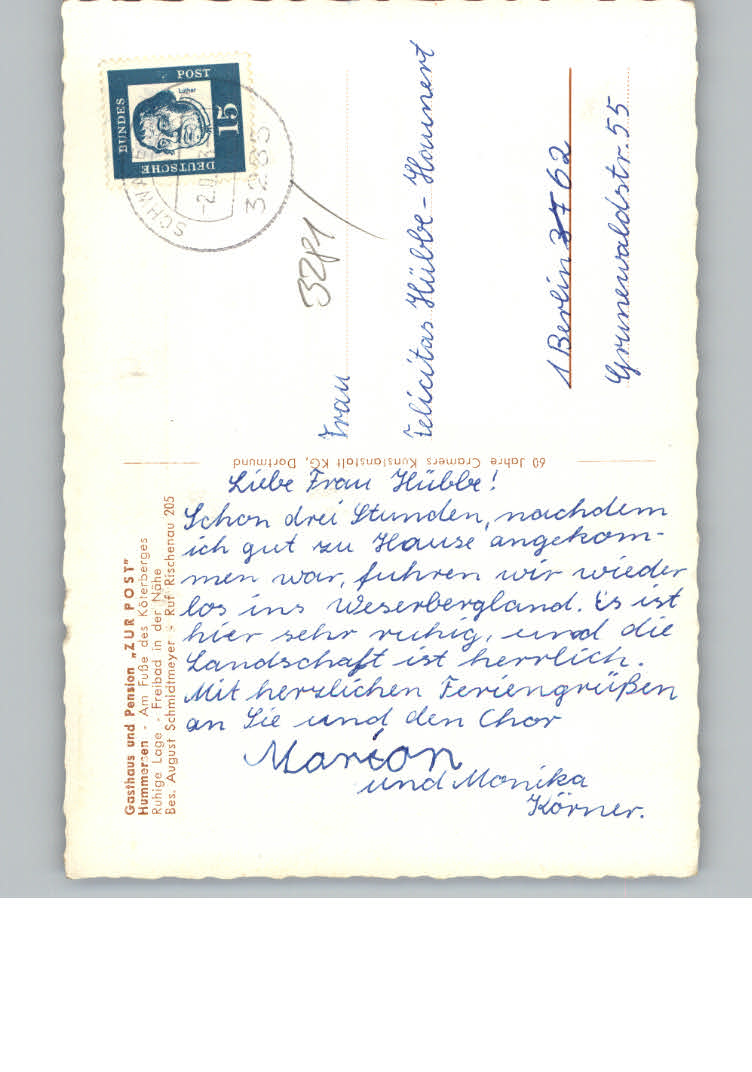 Gasthaus und Pension „ZUR POST"
Hummersen - Am Fuße des Köterberges
Ruhige Lage - Freibad in der Nähe
Bes. August Schmidtmeyer - Ruf Rischenau 205
Liebe Frau Hübbe!
Schon drei Stunden, nachdem
ich gut zu Hause angekom-
men war, fuhren wir wieder
los ins Weserbergland. Es ist
hier sehr ruhig, und die
Landschaft ist herrlich.
Mit herzlichen Feriengrüßen
an Sie und den Chor
Marion
und Monika
Körner.
60 Jahre Cramers Kunstanstalt KG, Dortmund
DEUTSCHE
BUNDES
POST
15
Luther
3285
3281
Frau
Felicitas Hübbe-Haunert
1 Berlin 62
Grunewaldstr. 55